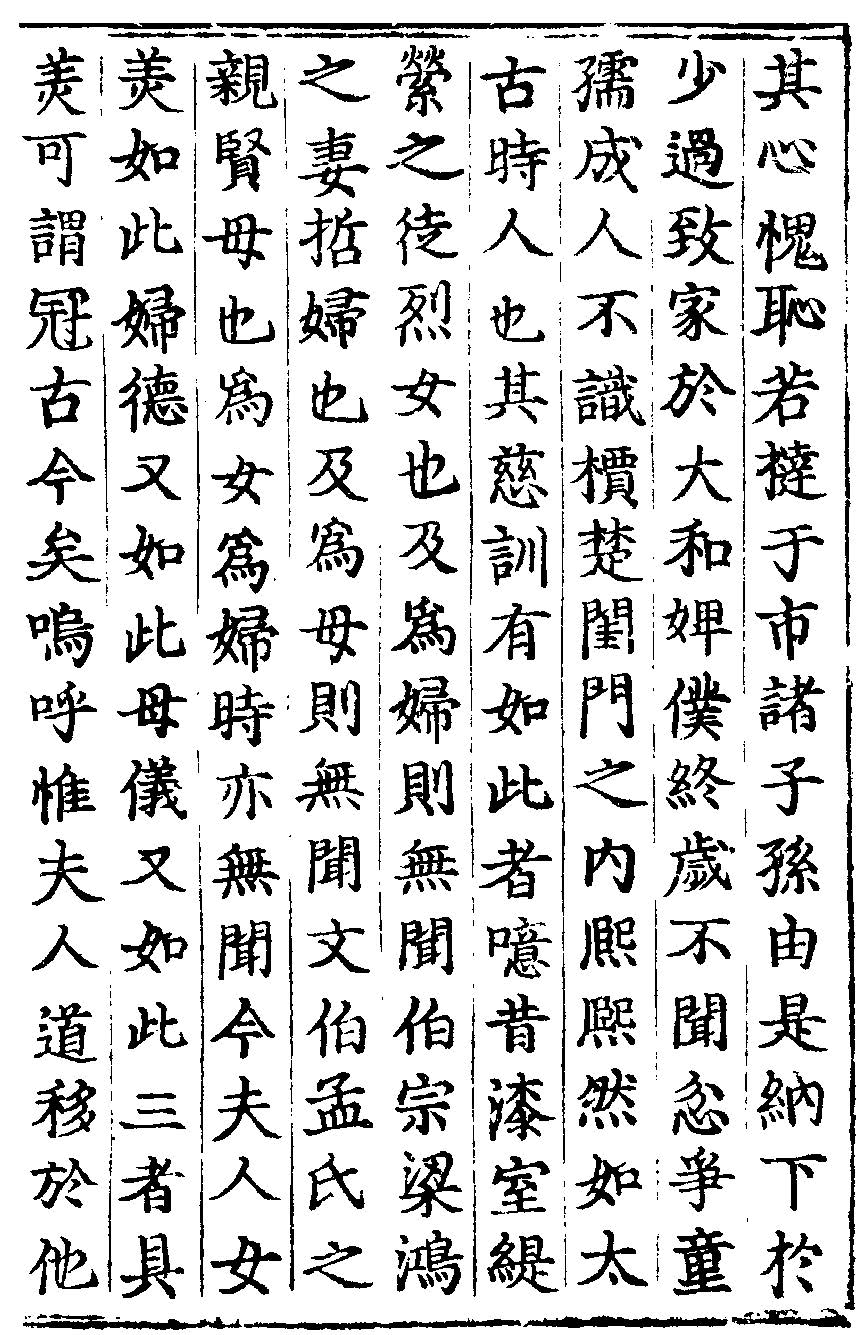 其心愧恥若撻于市諸子孫由是納下於
少過致家於大和婢僕終歲不聞忿爭童
孺成人不識檟楚閨門之內熙熙然如太
古時人也其慈訓有如此者噫昔漆室緹
縈之徒烈女也及爲婦則無聞伯宗梁鴻
之妻哲婦也及爲母則無聞文伯孟氏之
親賢母也爲女爲婦時亦無聞今夫人女
美如此婦德又如此母儀又如此三者具
美可謂冠古今矣嗚呼惟夫人道移於他